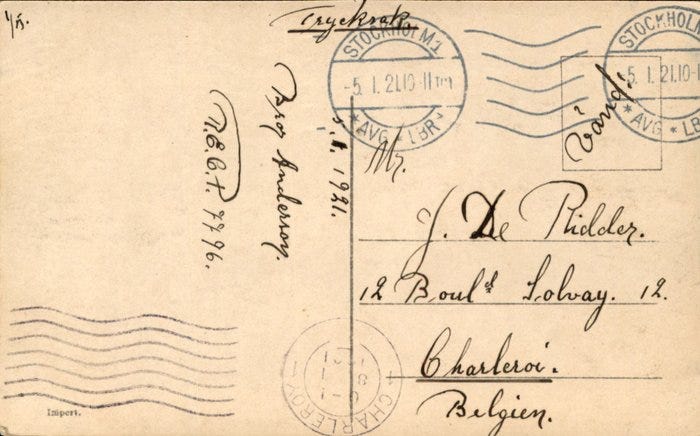 1/5.
Trycksak.
STOCKHOLM 1
-5. 1. 21.10-11 fm
* AVG * LBR *
STOCKHOLM
-5. 1. 21.10-1
* AVG * LB
Vänd.
5.1. 1921.
Broz Anderson.
T.E.C.T. 7796.
Mr.
J. De Ridder.
12 Boul.d Solvay. 12.
Charleroi.
Belgien.
CHARLEROY
Import.